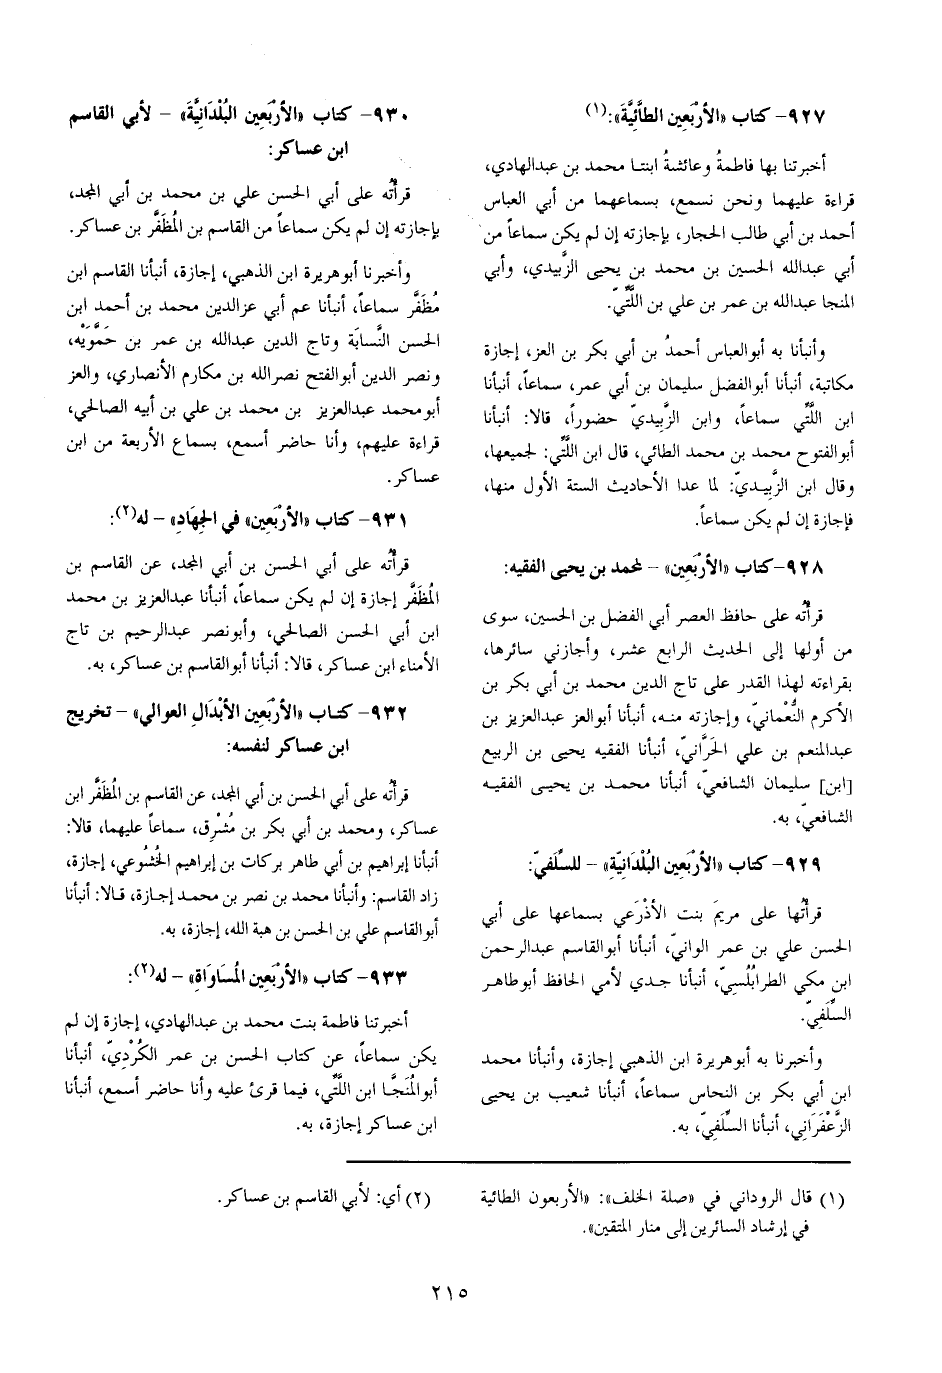 ٩٢٧- كتاب «الأَرْبَعين الطائِيَّة»:(١)
أخبرتنا بها فاطمةُ وعائشةُ ابنتا محمد بن عبدالهادي،
قراءة عليهما ونحن نسمع، بسماعهما من أبي العباس
أحمد بن أبي طالب الحجار، بإجازته إن لم يكن سماعاً من
أبي عبدالله الحسين بن محمد بن يحيى الزَّبيدي، وأبي
المنجا عبدالله بن عمر بن علي بن اللَّتِّيّ.
وأنبأنا به أبوالعباس أحمدُ بن أبي بكر بن العز، إجازة
مكاتبة، أنبأنا أبوالفضل سليمان بن أبي عمر، سماعاً، أنبأنا
ابن اللَّتِّي سماعاً، وابن الزَّبِيديّ حضوراً، قالا: أنبأنا
أبوالفتوح محمد بن محمد الطائي، قال ابن اللَّتِّي: لجميعها،
وقال ابن الزَّبِيديّ: لما عدا الأحاديث الستة الأول منها،
فإجازة إن لم يكن سماعاً.
٩٢٨-كتاب «الأَرْبَعين» – لمحمد بن يحيى الفقيه:
قرأتُه على حافظ العصر أبي الفضل بن الحسين، سوى
من أولها إلى الحديث الرابع عشر، وأجازني سائرها،
بقراءته لهذا القدر على تاج الدين محمد بن أبي بكر بن
الأكرم النُّعْمانيّ، وإجازته منه، أنبأنا أبوالعز عبدالعزيز بن
عبدالمنعم بن علي الحَرَّانيّ، أنبأنا الفقيه يحيى بن الربيع
[ابن] سليمان الشافعيّ، أنبأنا محمد بن يحيى الفقيه
الشافعيّ، به.
٩٢٩- كتاب «الأَرْبَعين البُلْدَانيّة» – للسِّلَفيّ:
قرأتُها على مريمَ بنت الأذْرَعي بسماعها على أبي
الحسن علي بن عمر الوانيّ، أنبأنا أبوالقاسم عبدالرحمن
ابن مكي الطرابُلُسيّ، أنبأنا جدي لأمي الحافظ أبوطاهر
السِّلَفِيّ.
وأخبرنا به أبوهريرة ابن الذهبي إجازة، وأنبأنا محمد
ابن أبي بكر بن النحاس سماعاً، أنبأنا شعيب بن يحيى
الزَّعْفَرَاني، أنبأنا السِّلَفيّ، به.
٩٣٠- كتاب «الأَرْبَعين البُلْدَانِيَّةَ» – لأبي القاسم
ابن عساكر:
قرأتُه على أبي الحسن علي بن محمد بن أبي المجد،
بإجازته إن لم يكن سماعاً من القاسم بن المُظَفَّر بن عساكر.
وأخبرنا أبوهريرة ابن الذهبي، إجازة، أنبأنا القاسم ابن
مُظَفَّر سماعاً، أنبأنا عم أبي عزالدين محمد بن أحمد ابن
الحسن النَّسابَة وتاج الدين عبدالله بن عمر بن حَمَّوَيْه،
ونصر الدين أبوالفتح نصرالله بن مكارم الأنصاري، والعز
أبومحمد عبدالعزيز بن محمد بن علي بن أبيه الصالحي،
قراءة عليهم، وأنا حاضر أسمع، بسماع الأربعة من ابن
عساكر.
٩٣١- كتاب «الأَرْبَعين» في الجِهَادِ» – له(٢):
قرأتُه على أبي الحسن بن أبي المجد، عن القاسم بن
المُظَفَّر إجازة إن لم يكن سماعاً، أنبأنا عبدالعزيز بن محمد
ابن أبي الحسن الصالحي، وأبونصر عبدالرحيم بن تاج
الأمناء ابن عساكر، قالا: أنبأنا أبوالقاسم بن عساكر، به.
٩٣٢- كتاب «الأَرْبَعين الأَبْدَالِ العوالي» – تخريج
ابن عساكر لنفسه:
قرأتُه على أبي الحسن بن أبي المجد، عن القاسم بن المُظَفَّر ابن
عساكر، ومحمد بن أبي بكر بن مُشْرِق، سماعاً عليهما، قالا:
أنبأنا إبراهيم بن أبي طاهر بركات بن إبراهيم الخُشُوعي، إجازة،
زاد القاسم: وأنبأنا محمد بن نصر بن محمد إجازة، قالا: أنبأنا
أبوالقاسم علي بن الحسن بن هبة الله، إجازة، به.
٩٣٣- كتاب «الأَرْبَعين المُسَاوَاةِ» – له(٢):
أخبرتنا فاطمة بنت محمد بن عبدالهادي، إجازة إن لم
يكن سماعاً، عن كتاب الحسن بن عمر الكُرْدِيّ، أنبأنا
أبوالمُنَجَّا ابن اللَّتِّي، فيما قرئ عليه وأنا حاضر أسمع، أنبأنا
ابن عساكر إجازة، به.
(١) قال الروداني في «صلة الخلف»: «الأربعون الطائية
في إرشاد السائرين إلى منار المتقين».
(٢) أي: لأبي القاسم بن عساكر.
٢١٥